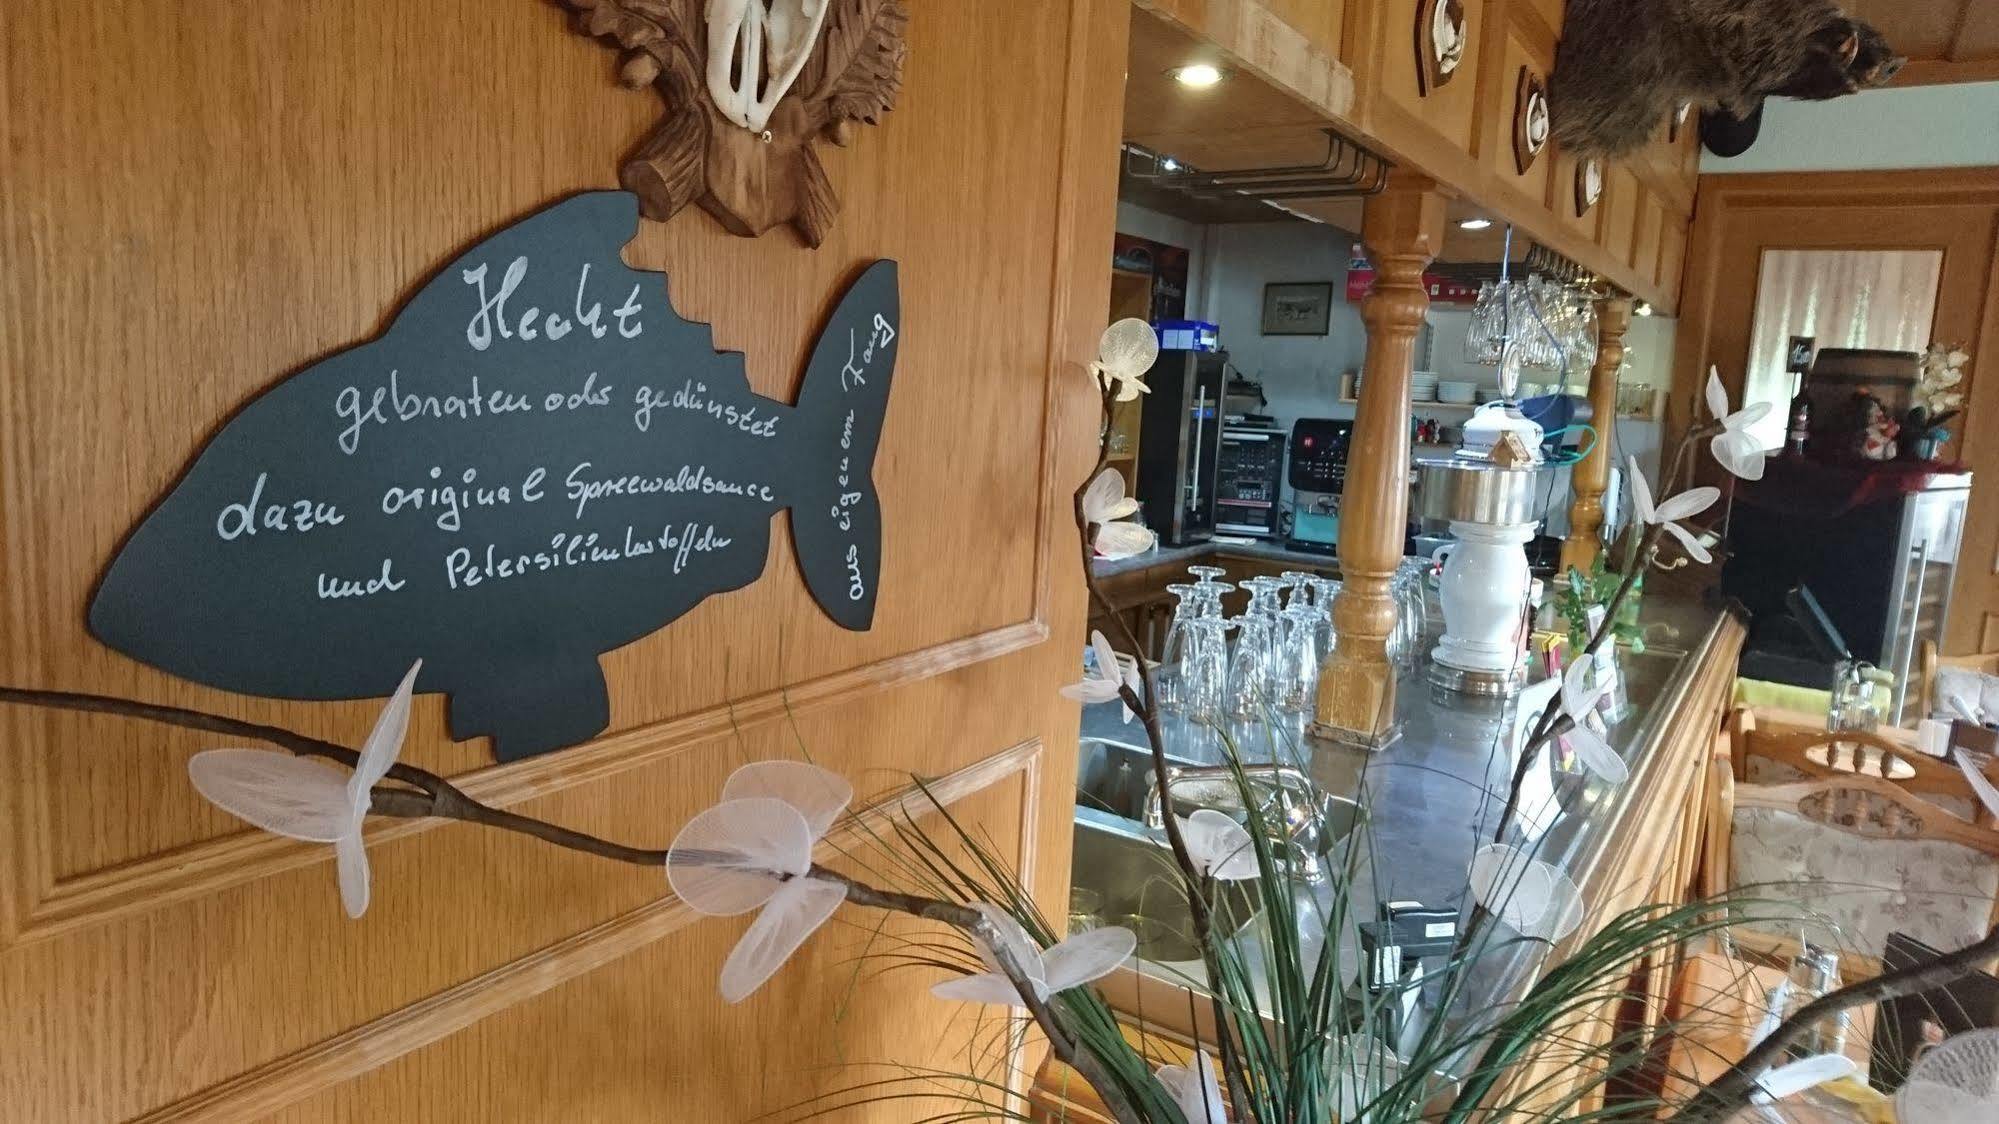 Hecht
gebraten oder gedünstet
dazu original Spreewaldsauce
und Petersilienkartoffeln
aus eigenem Fang